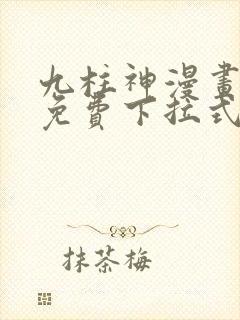 九柱神漫畫
免費下拉式
抹茶梅